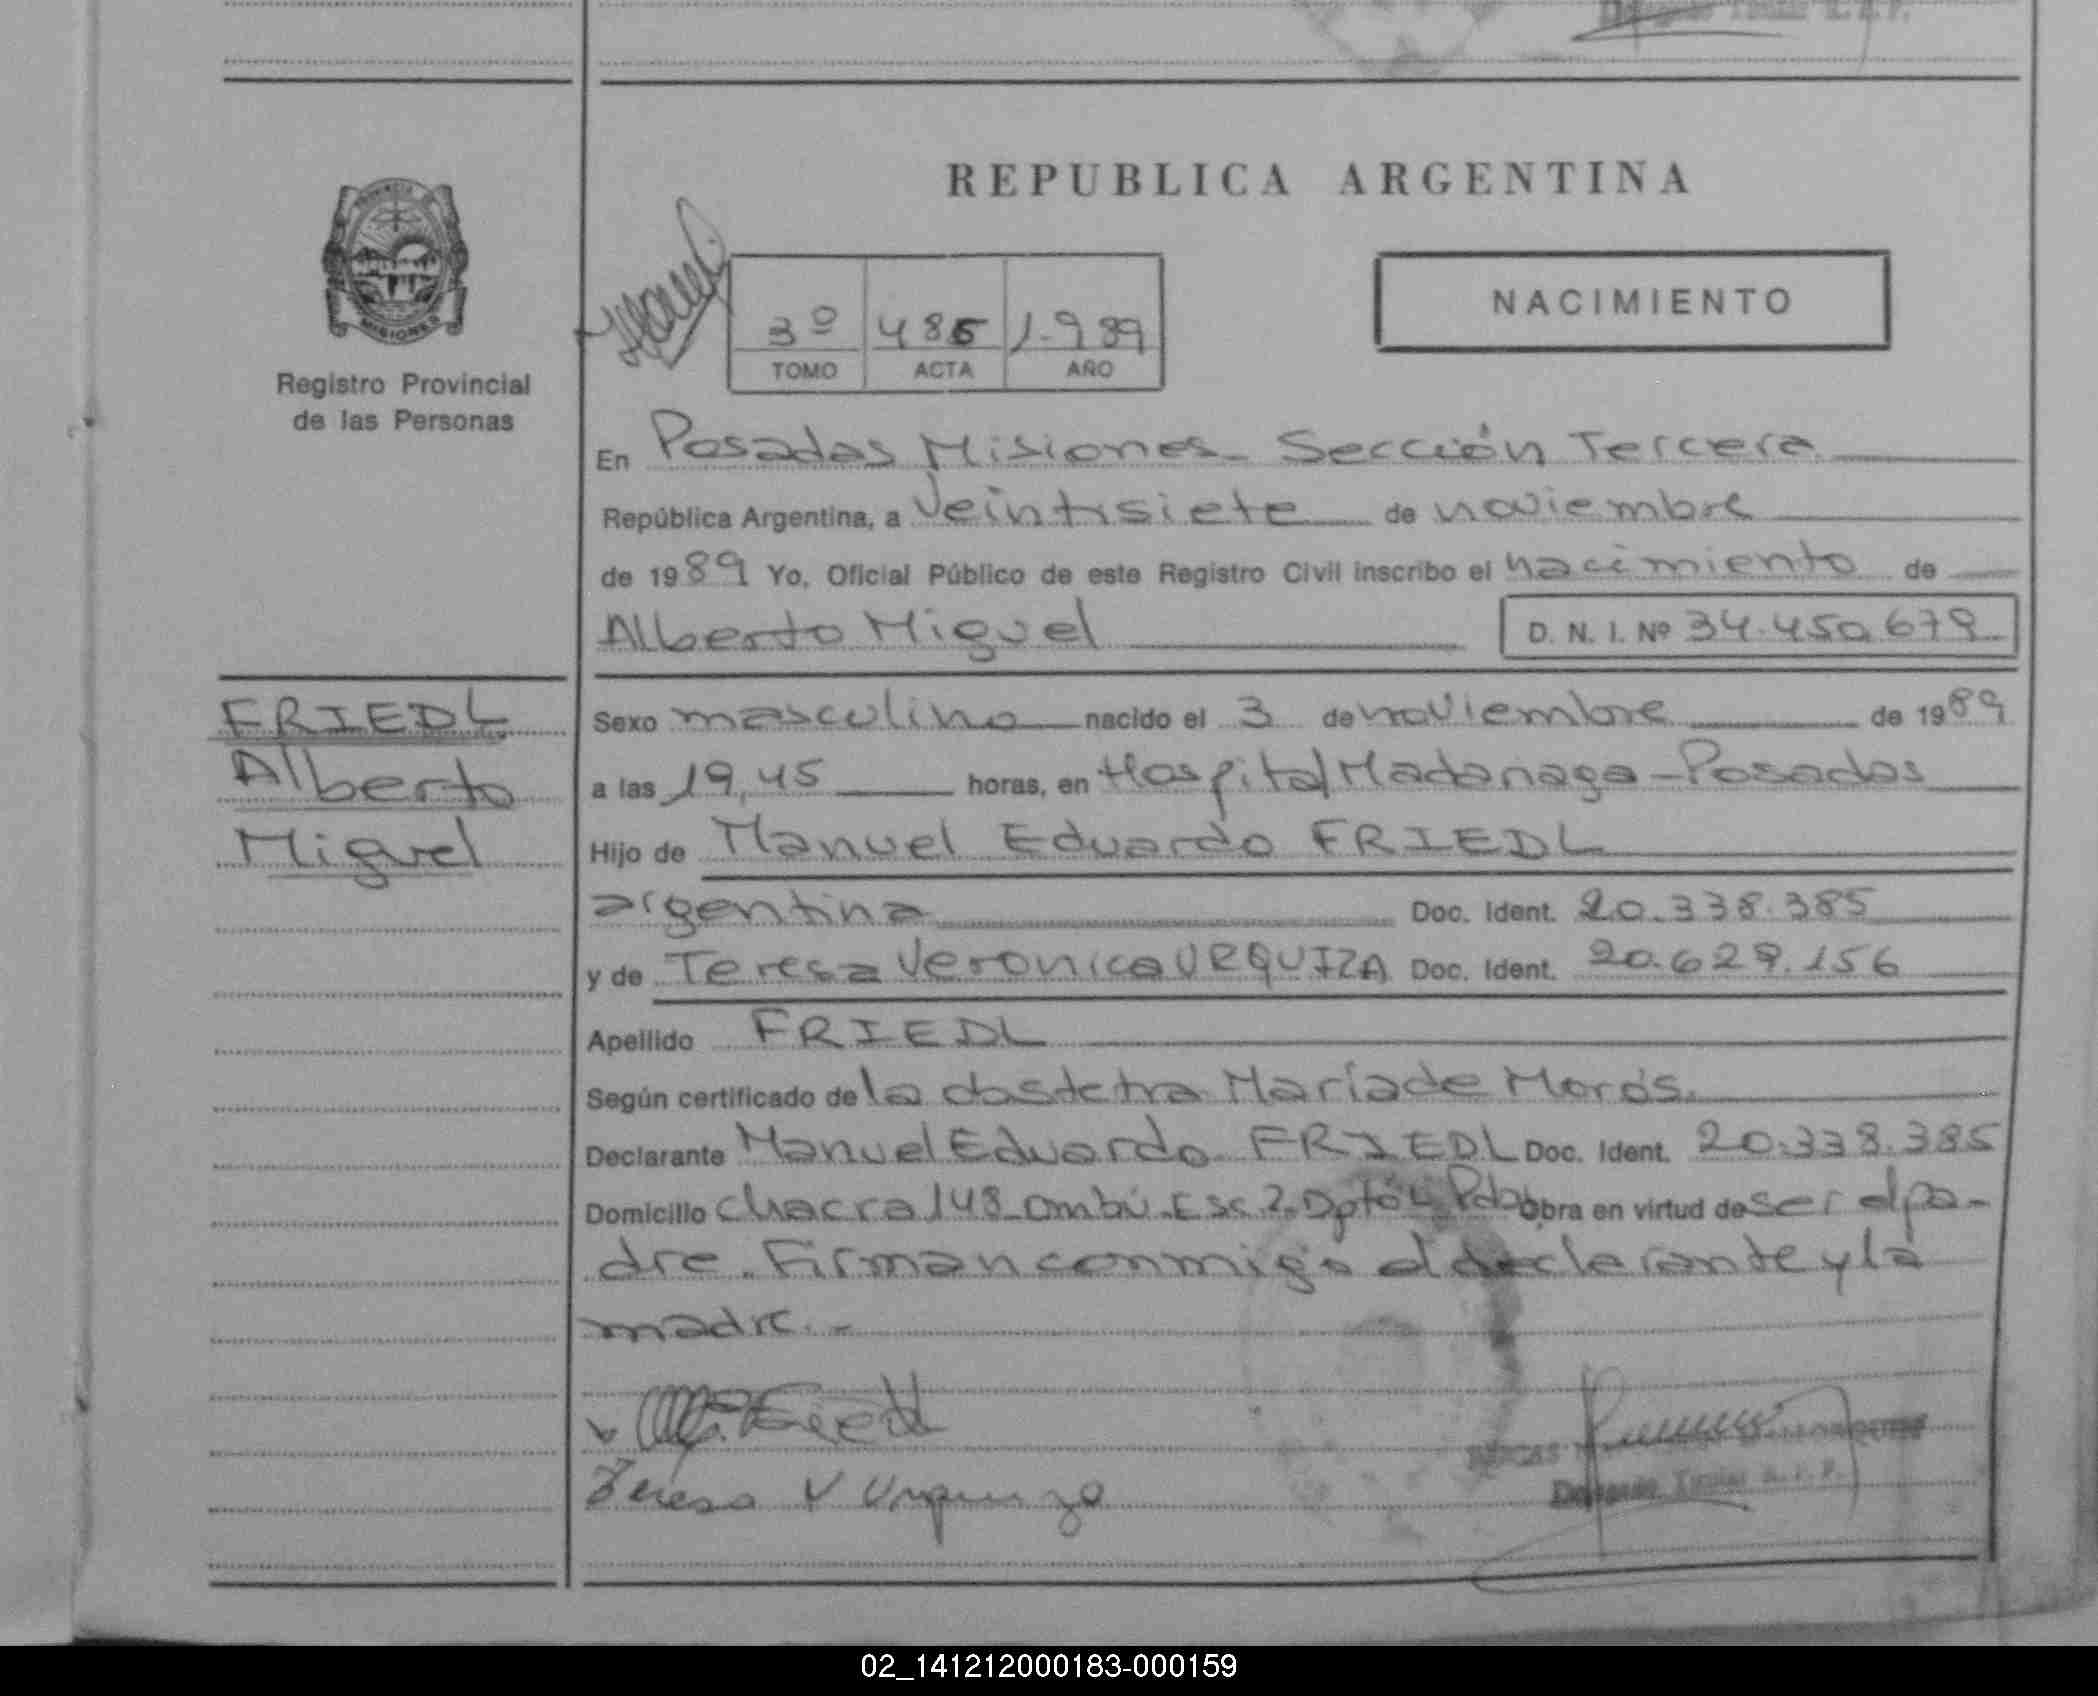 REPUBLICA ARGENTINA
PROVINCIA
MISIONES
Registro Provincial
de las Personas
3º 485 1.989
TOMO ACTA AÑO
NACIMIENTO
En Posadas Misiones - Sección Tercera
República Argentina, a Veintisiete de noviembre
de 1989 Yo, Oficial Público de este Registro Civil inscribo el nacimiento de
Alberto Miguel D. N. I. Nº 34.450.679
FRIEDL
Alberto
Miguel
Sexo masculino nacido el 3 de noviembre de 1989
a las 19,45 horas, en Hospital Madariaga - Posadas
Hijo de Manuel Eduardo FRIEDL
argentina Doc. Ident. 20.338.385
y de Teresa Veronica URQUIZA Doc. Ident. 20.629.156
Apellido FRIEDL
Según certificado de la obstetra María de Morós.
Declarante Manuel Eduardo FRIEDL Doc. Ident. 20.338.385
Domicilio chacra 148 - Ombú - Esc 2 - Dpto 4 Obra en virtud de ser el pa-
dre. Firman conmigo el declarante y la
madre. -
Teresa V Urquiza
Titular R. P.
02_141212000183-000159